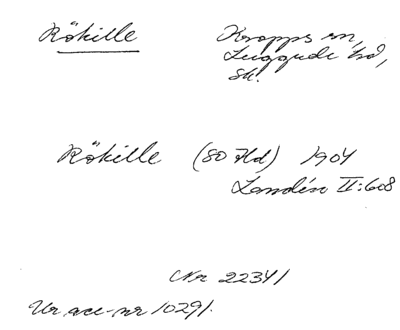 Rökille Kropps sn,
Luggude hd,
Sk.
Rökille (80 Hld) 1904
Landén II:608
Nr 22341
Ur acc-nr 10291.